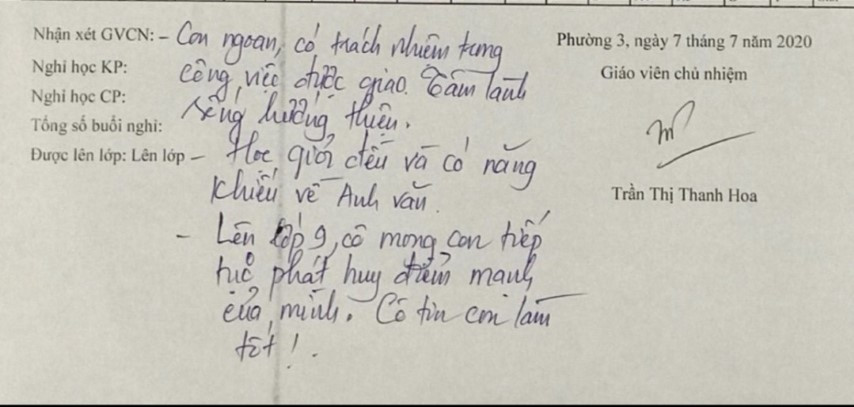 Nhận xét GVCN: - Con ngoan, có trách nhiệm trong
Phường 3, ngày 7 tháng 7 năm 2020
Nghỉ học KP: công việc được giao. Tâm lành
Giáo viên chủ nhiệm
Nghỉ học CP:
Tổng số buổi nghỉ: sống hướng thiện.
Được lên lớp: Lên lớp - Học giỏi đều và có năng
khiếu về Anh văn.
Trần Thị Thanh Hoa
- Lên lớp 9, cô mong con tiếp
tục phát huy điểm mạnh
của mình. Cô tin con làm
tốt!.